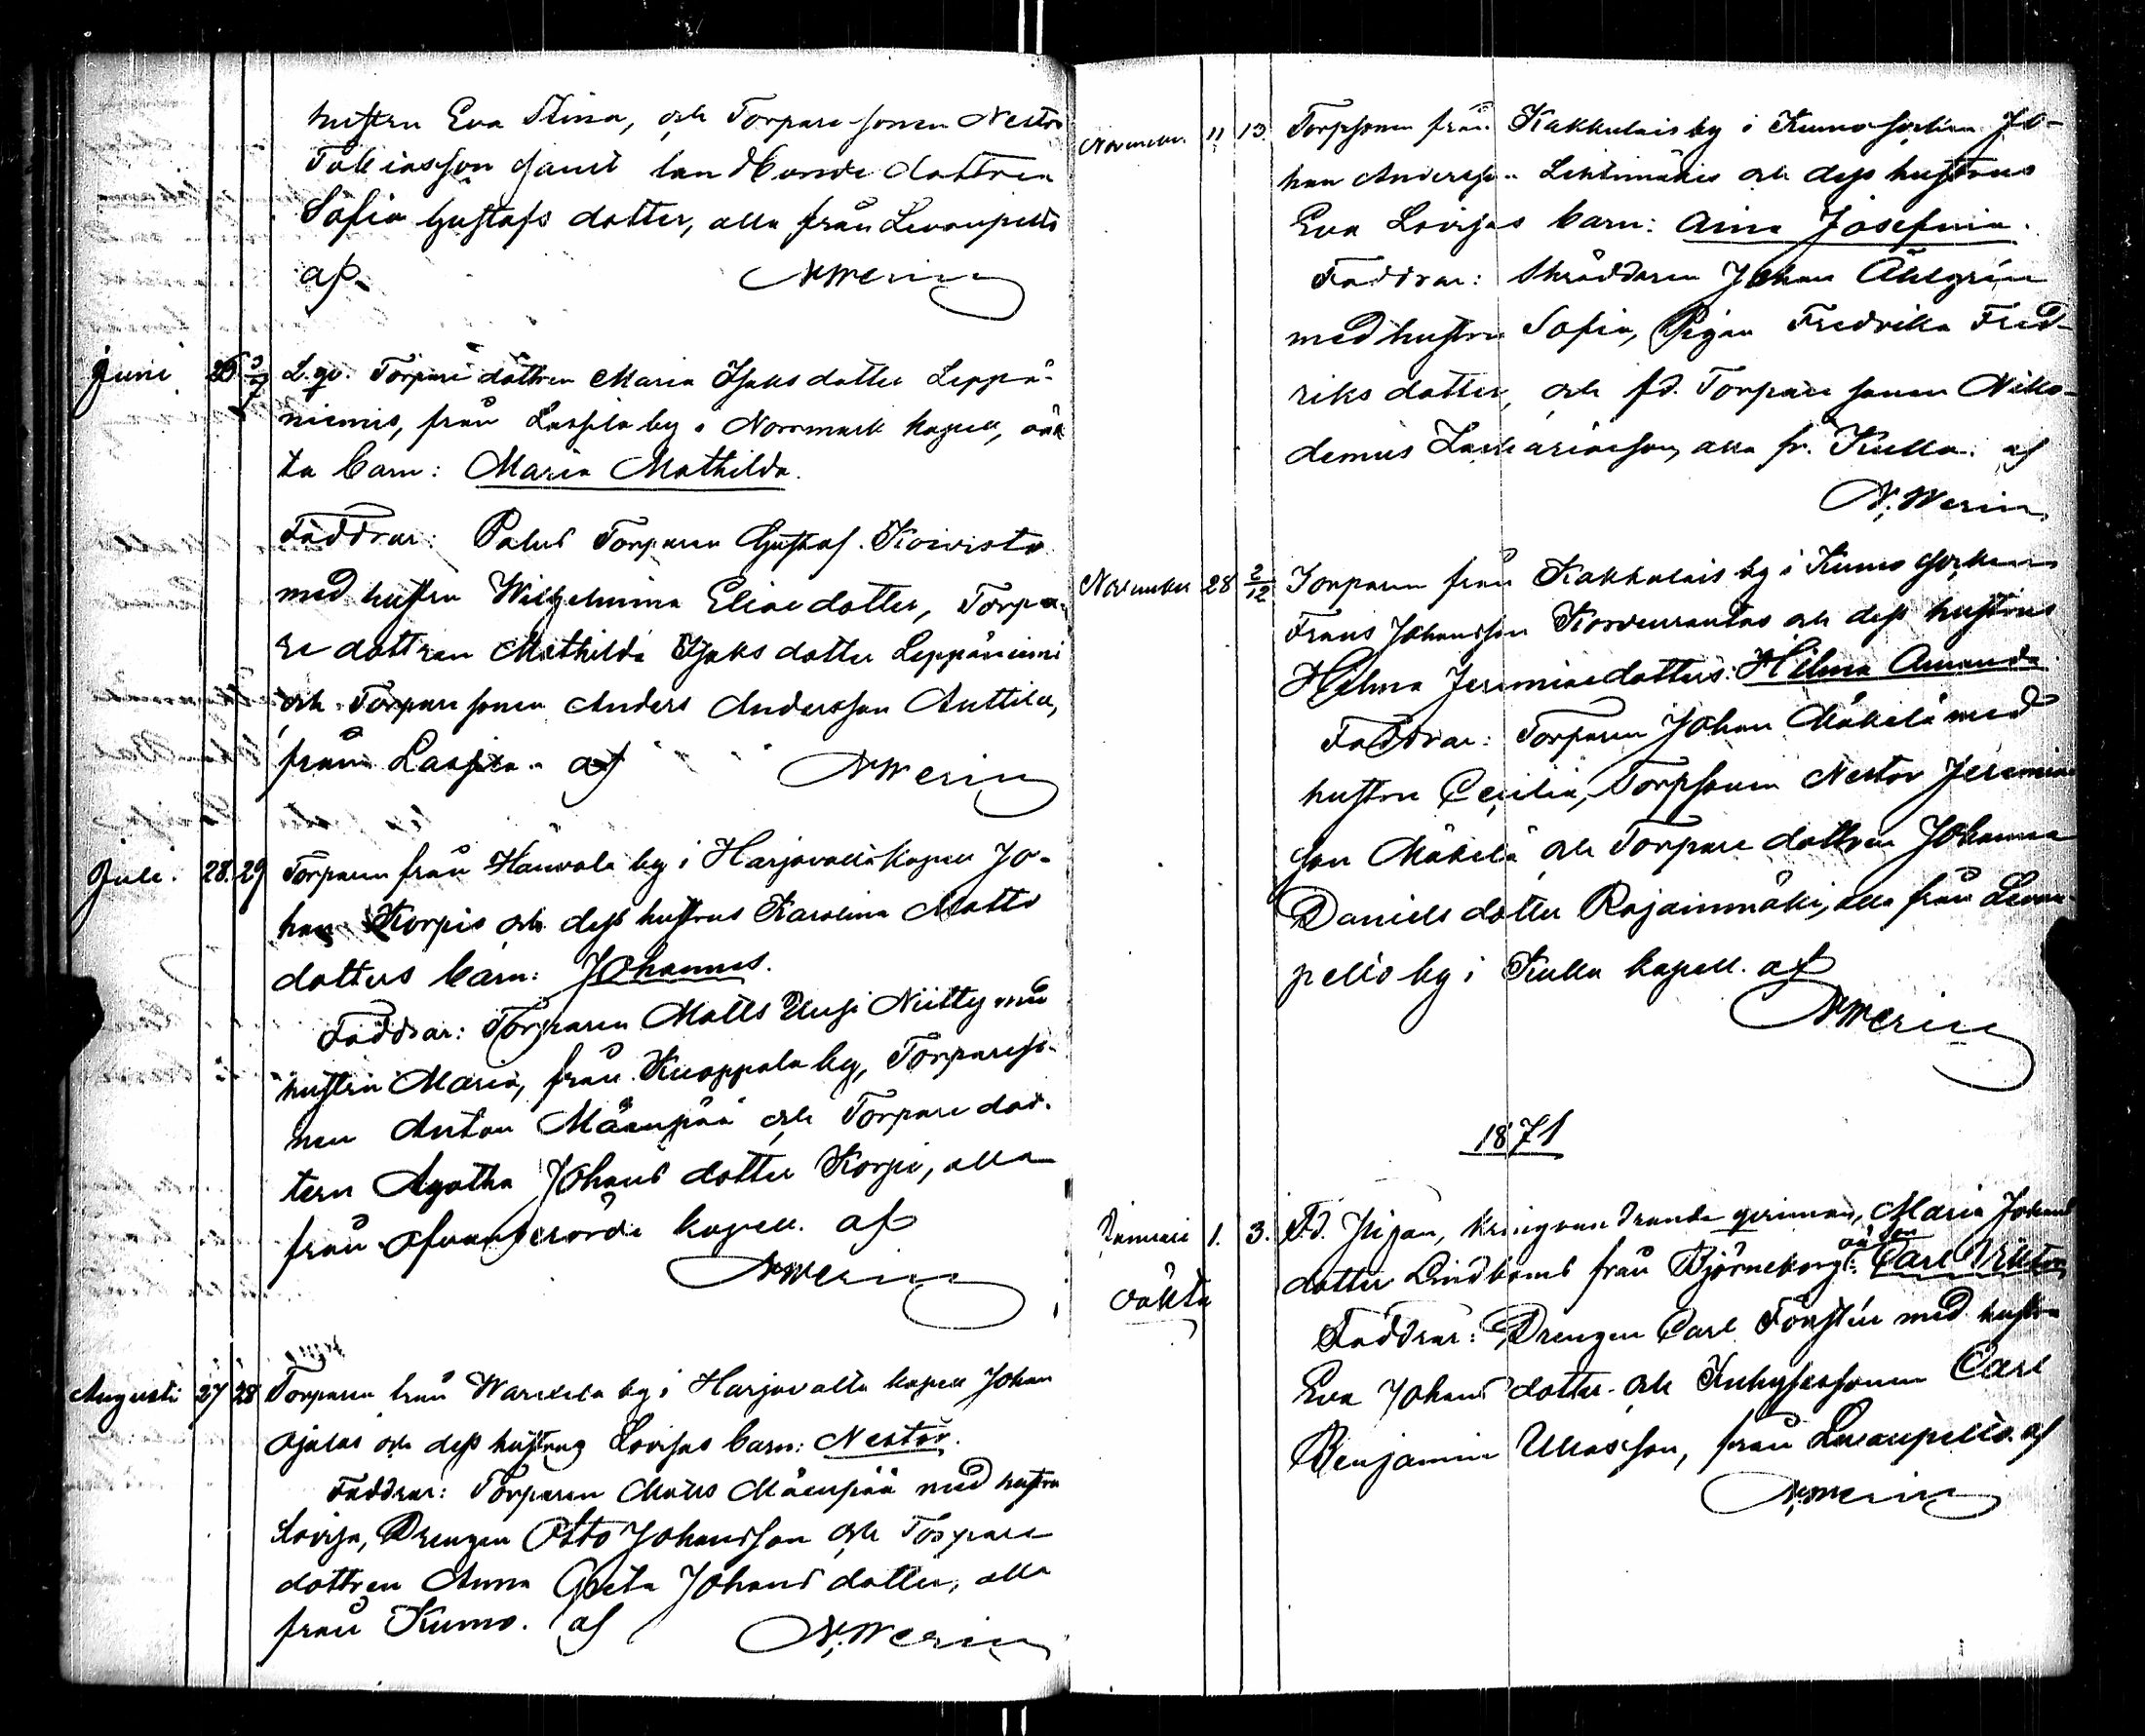 hustru Eva Stina, och Torpare sonen Nestor
Tobiasson samt landbonde dottren
Sofia Gustafs dotter, alla från Levanpelto
af NWerin
Juni 25 2/7 L. qv. Torpare dottren Maria Isaks dotter Leppä-
niemis, från Lassila by i Norrmark kapell, oäk
ta barn: Maria Mathilda.
Faddrar: Torparen Gustaf Koivisto
med hustru Wilhelmina Eliae dotter, Torpa-
re dottren Mathilda Isaks dotter Leppäniemi
och Torpare sonen Anders Andersson Anttila,
från Lassila. af NWerin
Juli. 28. 29 Torparen från Hanvola by i Harjavalla Kapell Jo-
han Korpis och dess hustrus Karolina Matts
dotters barn: Johannes.
Faddrar: Torparen Matts Uusi Niitty med
hustru Maria, från Knaappala by, Torpareso-
nen Anton Mäenpää och Torpare dot-
tern Agatha Johans dotter Korpi, alla
från kapell. af
NWerin
Augusti 27 28 Torparen från by i Harjavalta kapell Johan
Ojalas och dess hustrus Lovisas barn: Nestor.
Faddrar: Torparen Matts Mäenpää med hustru
Lovisa, Drengen Otto Johansson och Torpare
dottren Anna Greta Johans dotter, alla
från Kumo. af N.Werin
November 11 13. Torpsonen från Kakkulais by i Kumo socken Jo-
han Andersson Lehtimäkis och dess hustrus
Eva Lovisas barn: Aina Josefina.
Faddrar: Skräddaren Johan Åhlgrén
med hustru Sofia, Pigan Fredrika Fred-
riks dotter, och fd. Torpare sonen Niko-
demus Zachariasson, alla fr. Kulla. af
N.Werin
November 28 2/12 Torparen från Kakkulais by i Kumo socken
Frans Johansson Korvenrantas och dess hustrus
Hilma Jeremiae dotters: Hilma Amanda.
Faddrar: Torparen Johan Mäkelä med
hustru Cecilia, Torpsonen Nestor Jeremias
son Mäkelä och Torpare dottren Johanna
Daniels dotter Rajainmäki, alla från Levan-
pelto by i Kulla kapell. af
NWerin
1871
Januari 1. 3. F.d. Pigan, kringvandrande qvinnan, Maria Johans
oä. son
dotter Lindboms från Björneborg: Carl Viktor
oäkta
Faddrar: Drengen Carl Forstén med hustru
Eva Johans dotter och Inhysessonen Carl
Benjamin Ulasson, från Levanpelto. af
N.Werin